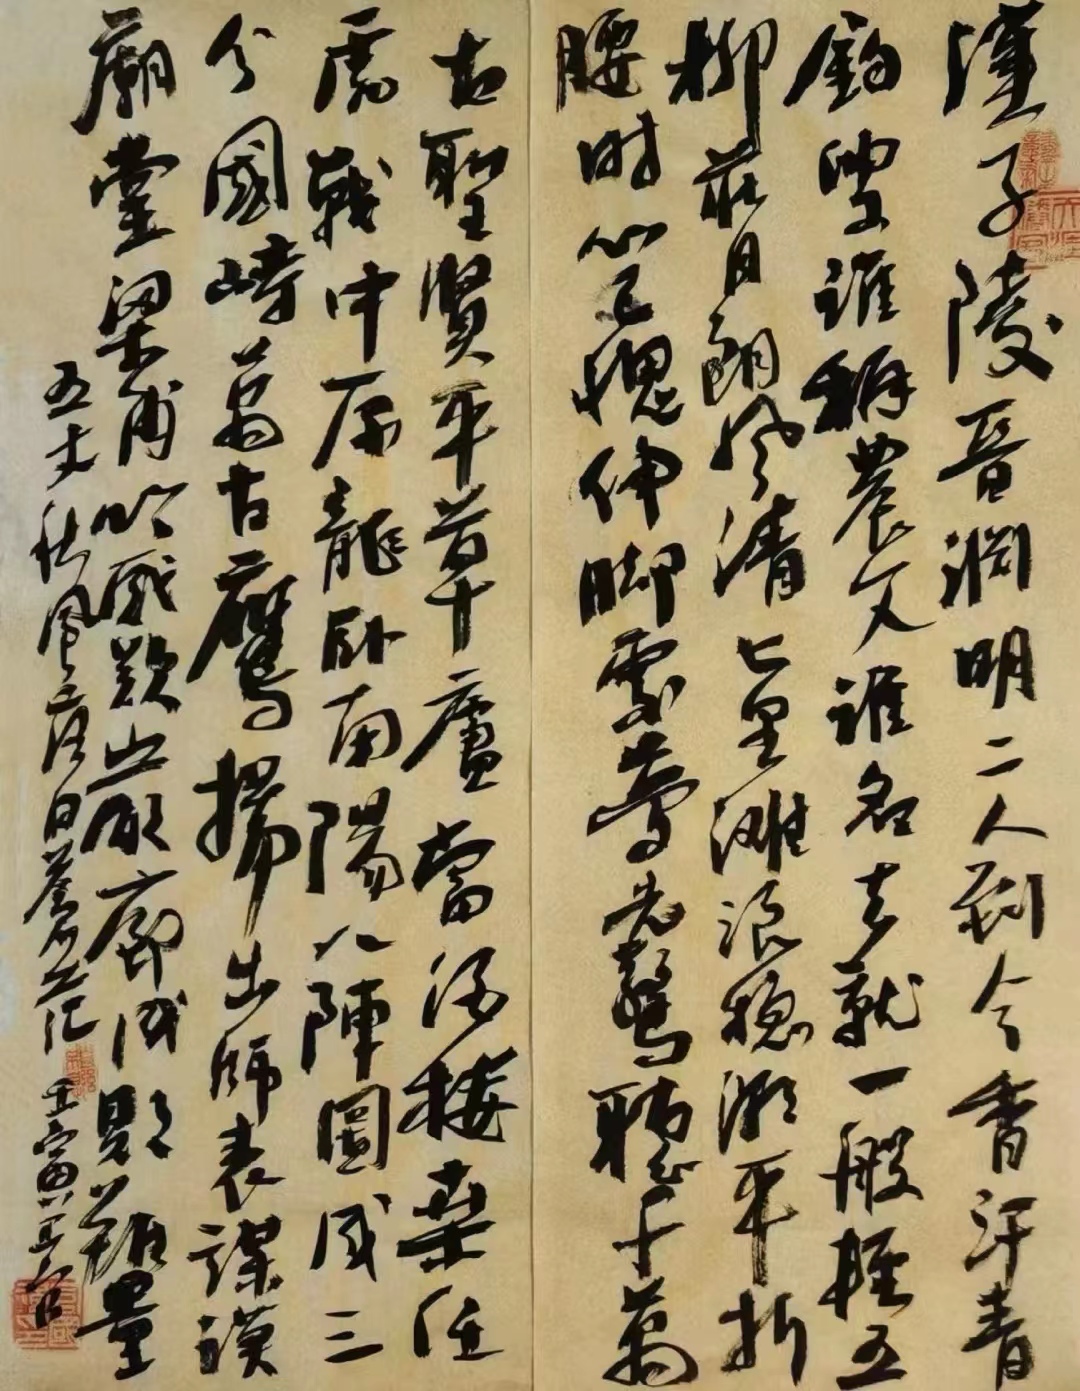 漢子陵晉淵明二人到今香汗青
釣叟誰稱農父誰名去就一般輕五
柳莊月朗風清七里灘浪穩潮平折
腰時心已愧伸脚處夢先驚聽千萬
古聖賢平草廬當樓桑任
虎戰中原龍卧南陽八陣圖成三
分國峙萬古鷹揚出師表謀謨
廟堂梁甫吟感歎岩廊成敗難量
五丈秋風落日蒼茫 壬寅